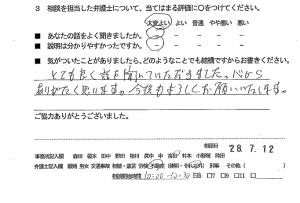 3 相談を担当した弁護士について、当てはまる評価に○をつけてください。
大変よい よい 普通 やや悪い 悪い
■ あなたの話をよく聞きましたか。
■ 説明は分かりやすかったですか。
■ 気がついたことがありましたら、どのようなことでも結構ですからお書きください。
とても良く話を聞いていただきました。心から
ありがたく思います。今後もよろしくお願いいたします。
ご協力ありがとうございました。
相談日 28.7.12
事務所記入欄
弁護士記入欄 離婚 男女 交通事故 相続・遺言 労働 不動産 刑事 その他( )
相談開始時間 10:00-10:30